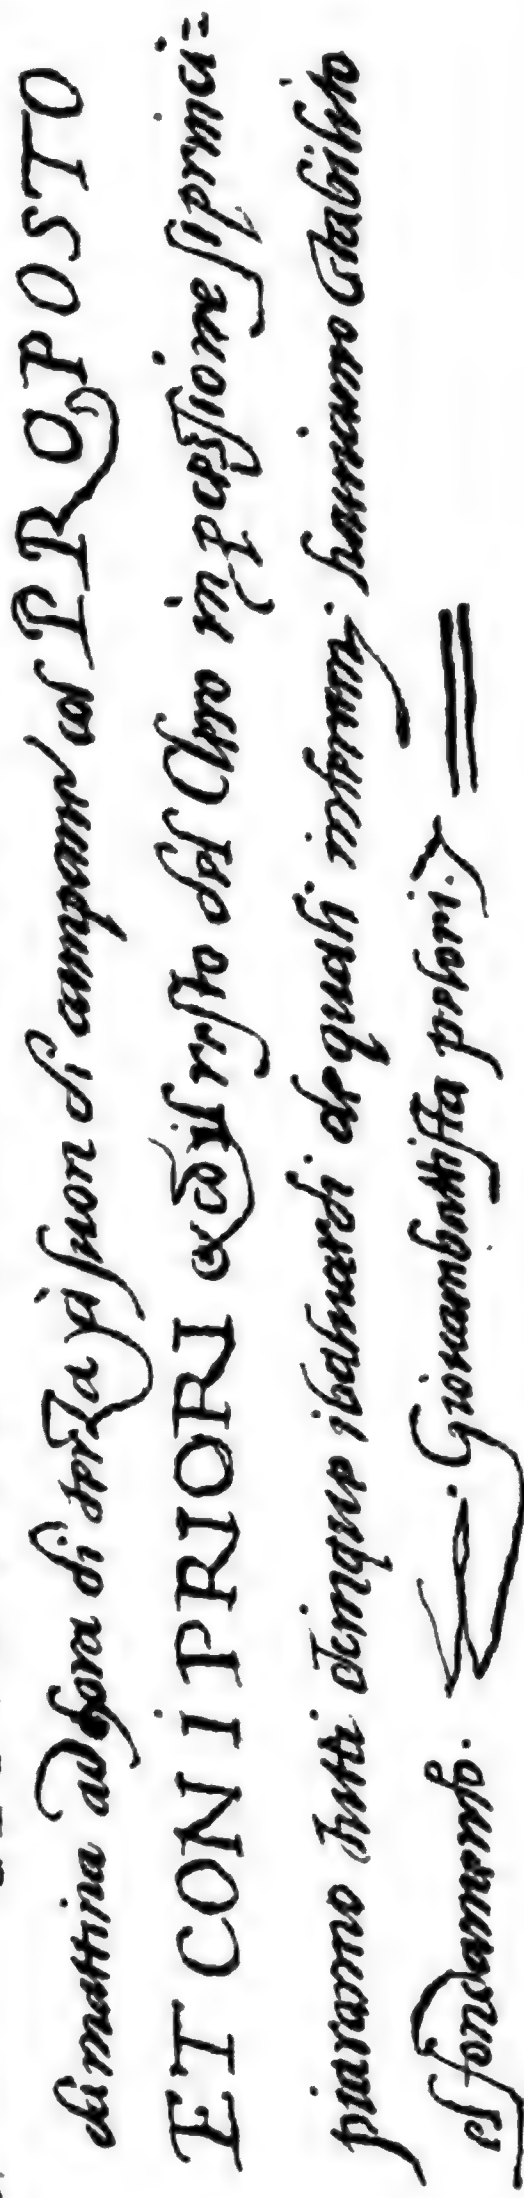 di mattina ad hora di terza p̱ suon di campana col PROPOSTO
ET CON i PRIORI & col resto del Clero in processione si princi=
piarano tutti cinque i baluardi de quali insegnij haviamo stabilito
el fondamento. Giovambattista pelori.